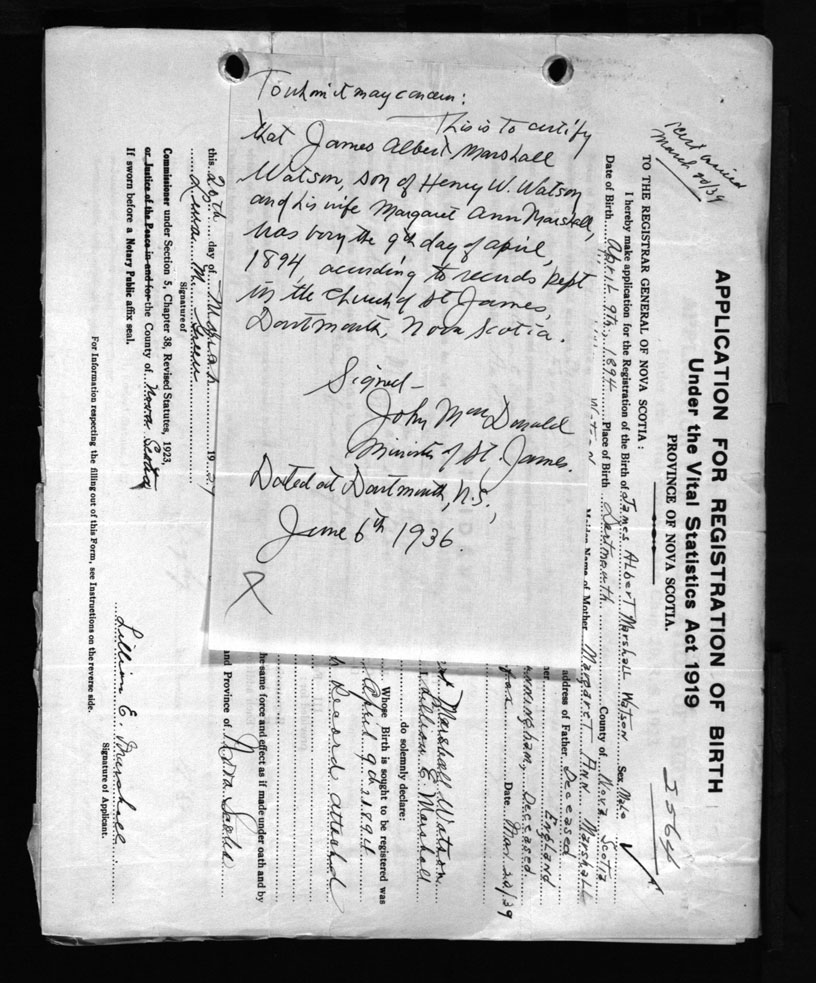 To whom it may concern:
This is to certify
that James Albert Marshall
Watson, son of Henry W. Watson
and his wife Margaret Ann Marshall,
was born the 9th day of April,
1894, according to records kept
in the Church of St James,
Dartmouth, Nova Scotia.
Signed—
John MacDonald
Minister of St. James.
Dated at Dartmouth, N.S.,
June 6th 1936.
March 20/39
APPLICATION FOR REGISTRATION OF BIRTH
Under the Vital Statistics Act 1919
PROVINCE OF NOVA SCOTIA.
2564
TO THE REGISTRAR GENERAL OF NOVA SCOTIA:
I hereby make application for the Registration of the Birth of James Albert Marshall Watson Sex Male
Date of Birth April 9th, 1894 Place of Birth Dartmouth County of Nova Scotia
Watson Maiden Name of Mother Margaret Ann Marshall
address of Father Deceased
England
Deceased
Date Mar 20/39
Marshall Watson
Lillian E. Marshall
do solemnly declare:
Whose Birth is sought to be registered was
April 9th 1894
Record attached
the same force and effect as if made under oath and by
and Province of Nova Scotia
this 20th day of March 19
Signature of
Commissioner under Section 5, Chapter 38, Revised Statutes, 1923,
or Justice of the Peace in and for the County of Nova Scotia
If sworn before a Notary Public affix seal.
Lillian E. Marshall
Signature of Applicant.
For Information respecting the filling out of this Form, see Instructions on the reverse side.